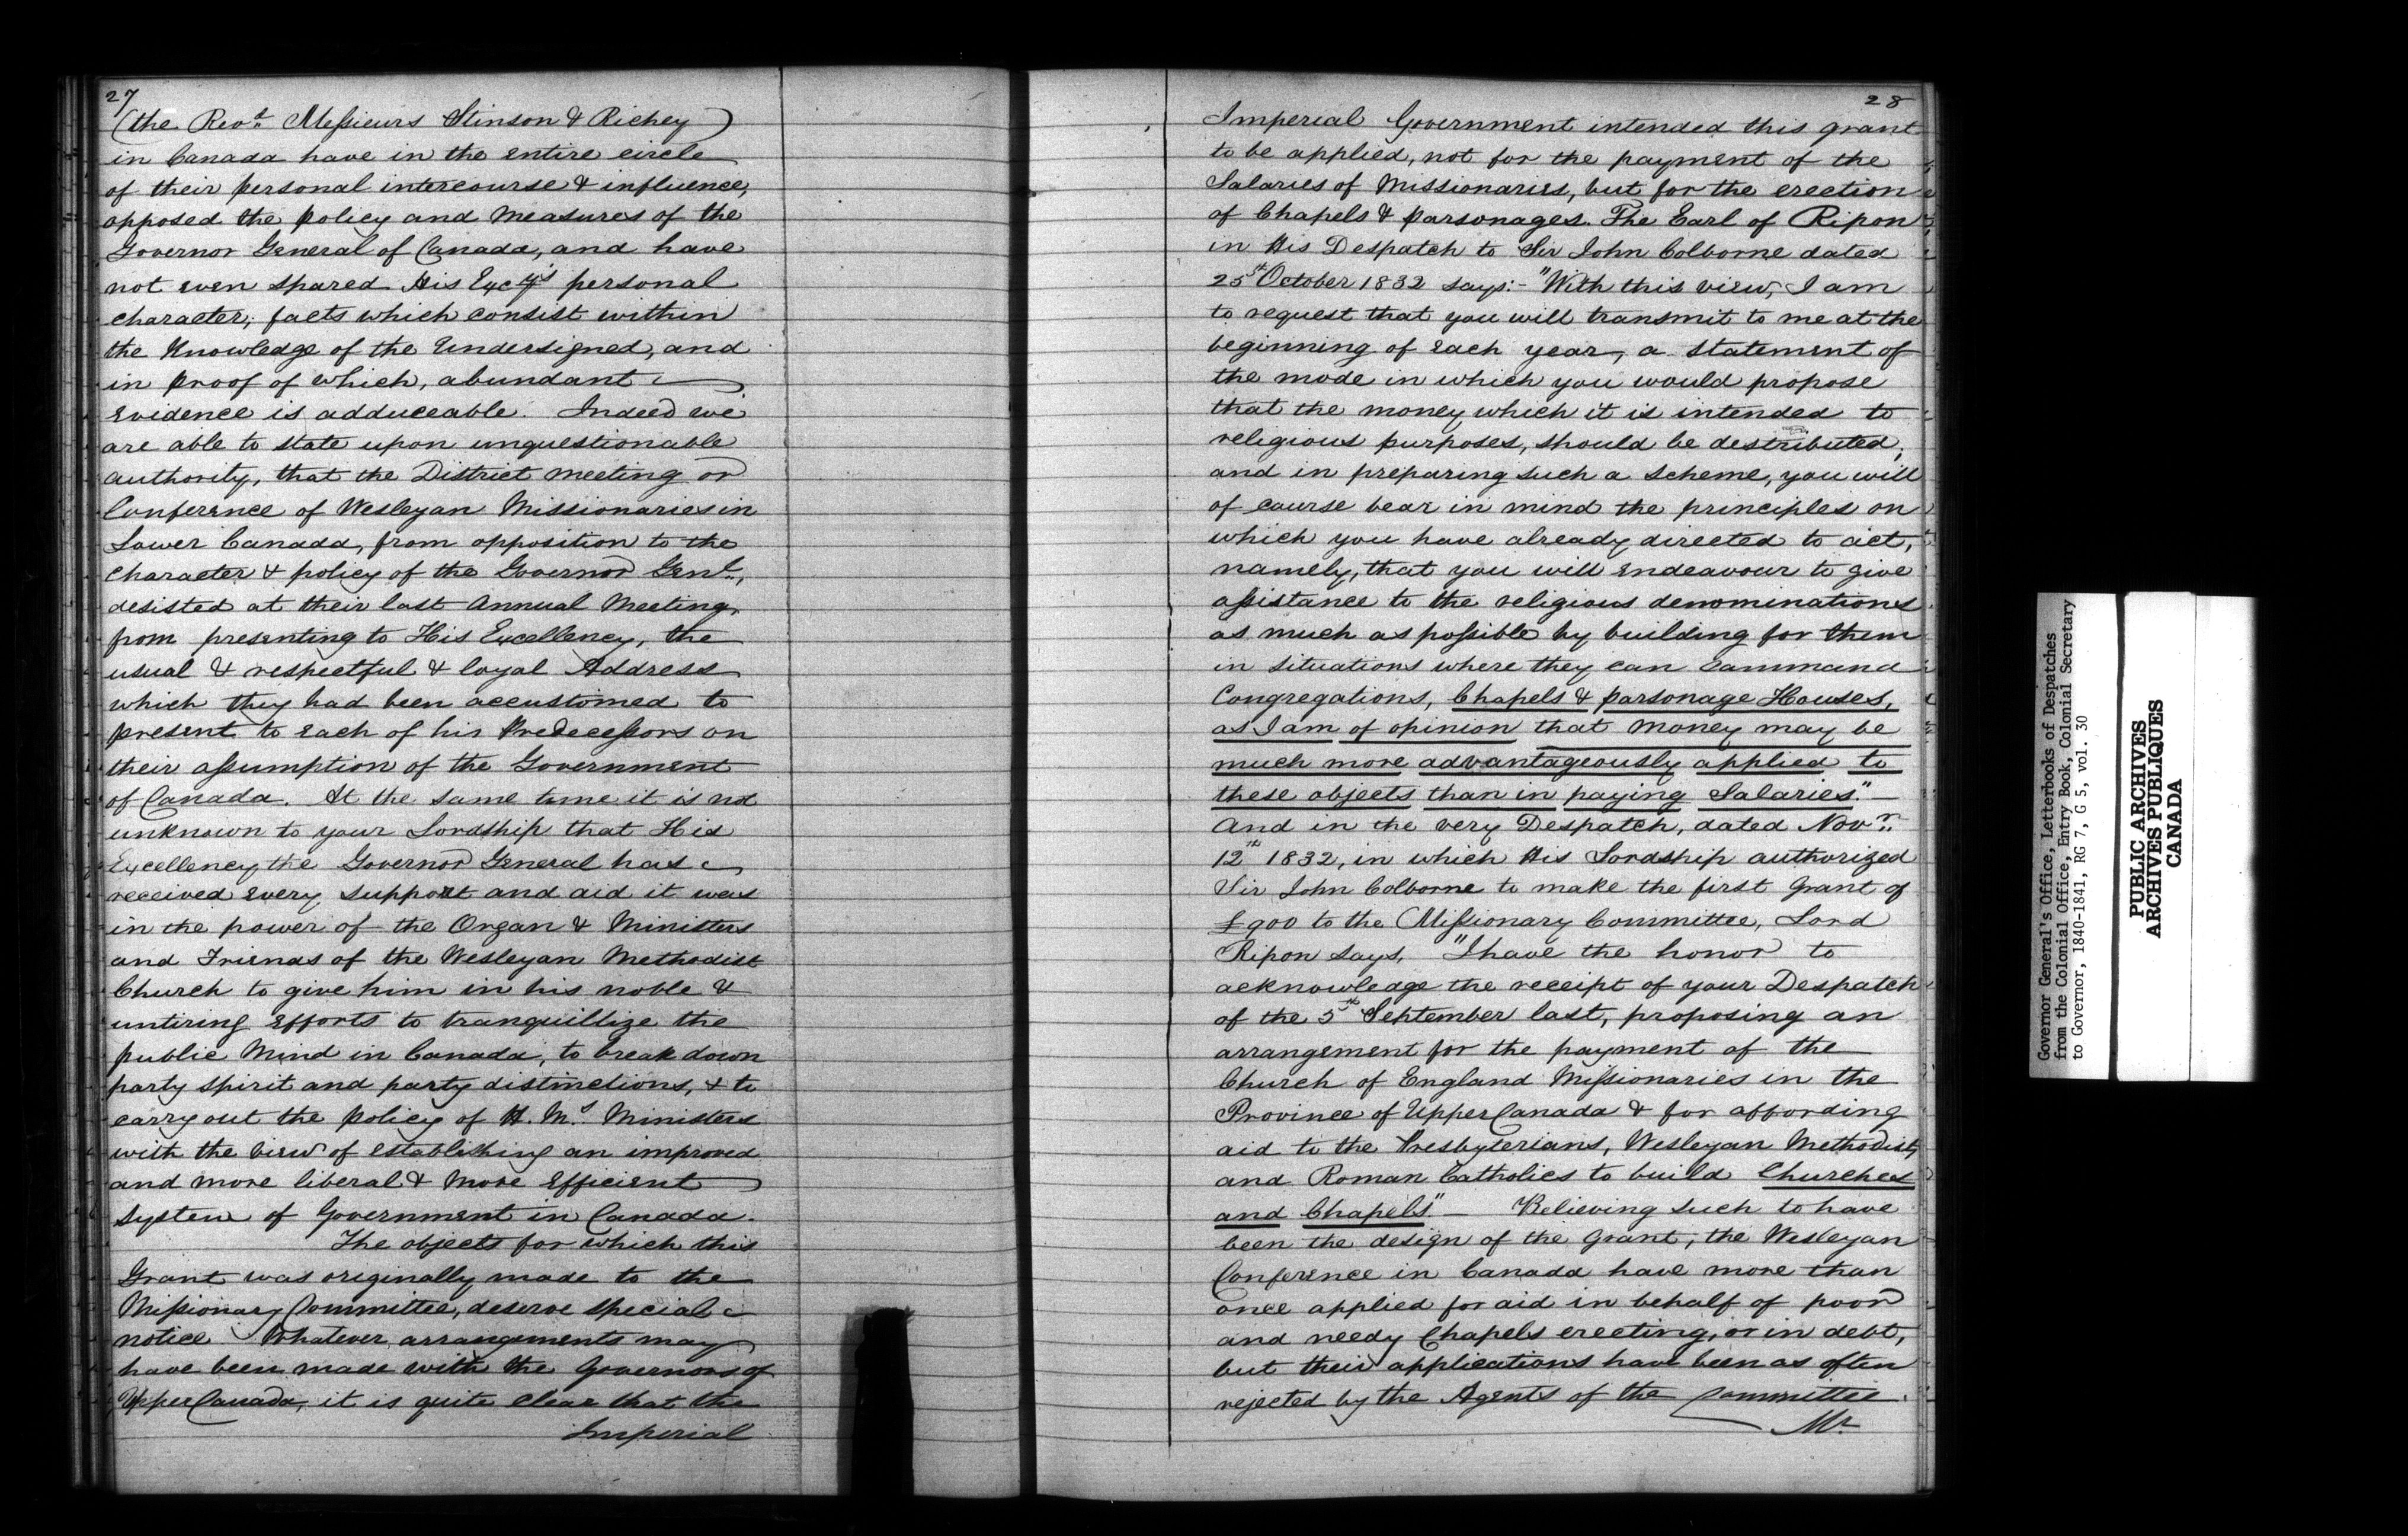 27
(the Revd. Messieurs Stinson & Richey)
in Canada have in the entire circle
of their personal intercourse & influence,
opposed the policy and measures of the
Governor General of Canada, and have
not even spared His Excy's personal
character; facts which consist within
the Knowledge of the Undersigned, and
in proof of which, abundant
evidence is adduceable. Indeed we
are able to state upon unquestionable
authority, that the District meeting or
Conference of Wesleyan Missionaries in
Lower Canada, from opposition to the
character & policy of the Governor Genl.,
desisted at their last Annual Meeting,
from presenting to His Excellency, the
usual & respectful & loyal Address
which they had been accustomed to
present to each of his Predecessors on
their assumption of the Government
of Canada. At the same time it is not
unknown to your Lordship that His
Excellency the Governor General has
received every support and aid it was
in the power of the Organ & Ministers
and Friends of the Wesleyan Methodist
Church to give him in his noble &
untiring efforts to tranquillize the
public Mind in Canada, to break down
party spirit and party distinctions, & to
carry out the policy of H. Ms. Ministers
with the view of establishing an improved
and more liberal & more efficient
system of Government in Canada.
The objects for which this
Grant was originally made to the
Missionary Committee, deserve special
notice Whatever arrangements may
have been made with the Governors of
Upper Canada, it is quite clear that the
Imperial
28
Imperial Government intended this grant
to be applied, not for the payment of the
Salaries of Missionaries, but for the erection
of Chapels & parsonages. The Earl of Ripon
in His Despatch to Sir John Colborne dated
25th October 1832 says:- "With this view, I am
to request that you will transmit to me at the
beginning of each year, a statement of
the mode in which you would propose
that the money which it is intended to
religious purposes, should be destributed;
and in preparing such a scheme, you will
of course bear in mind the principles on
which you have already directed to act,
namely, that you will endeavour to give
assistance to the religious denominations
as much as possible by building for them
in situations where they can command
Congregations, Chapels & parsonage Houses,
as I am of opinion that money may be
much more advantageously applied to
these objects than in paying Salaries." -
And in the very Despatch, dated Novr.
12th 1832, in which His Lordship authorized
Sir John Colborne to make the first Grant of
£900 to the Missionary Committee, Lord
Ripon says, "I have the honor to
acknowledge the receipt of your Despatch
of the 5th September last, proposing an
arrangement for the payment of the
Church of England Missionaries in the
Province of Upper Canada & for affording
aid to the Presbyterians, Wesleyan Methodists,
and Roman Catholics to build Churches
and Chapels". - Believing such to have
been the design of the Grant, the Wesleyan
Conference in Canada have more than
once applied for aid in behalf of poor
and needy Chapels erecting, or in debt,
but their applications have been as often
rejected by the Agents of the Committee.
Mr.
Governor General's Office, Letterbooks of Despatches
from the Colonial Office, Entry Book, Colonial Secretary
to Governor, 1840-1841, RG 7, G 5, vol. 30
PUBLIC ARCHIVES
ARCHIVES PUBLIQUES
CANADA